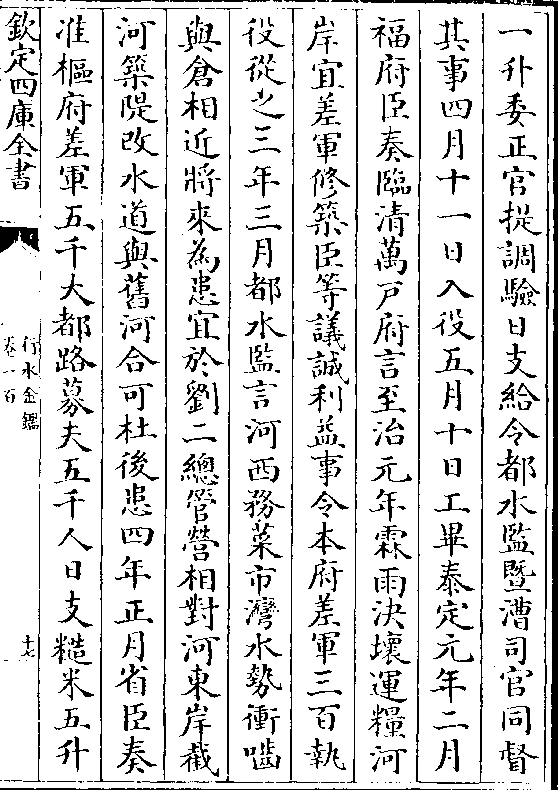 一升委正官提調驗日支給令都水監暨漕司官同督
其事四月十一日入役五月十日工畢泰定元年二月
福府臣奏臨清萬戸府言至治元年霖雨決壞運糧河
岸宜差軍修築臣等議誠利益事令本府差軍三百執
役從之三年三月都水監言河西務菜市灣水勢衝囓
與倉相近將來為患宜於劉二總管營相對河東岸截
河築隄改水道與舊河合可杜後患四年正月省臣奏
准樞府差軍五千大都路募夫五千人日支糙米五升
欽定四庫全書
行水金鑑
卷一百
十七